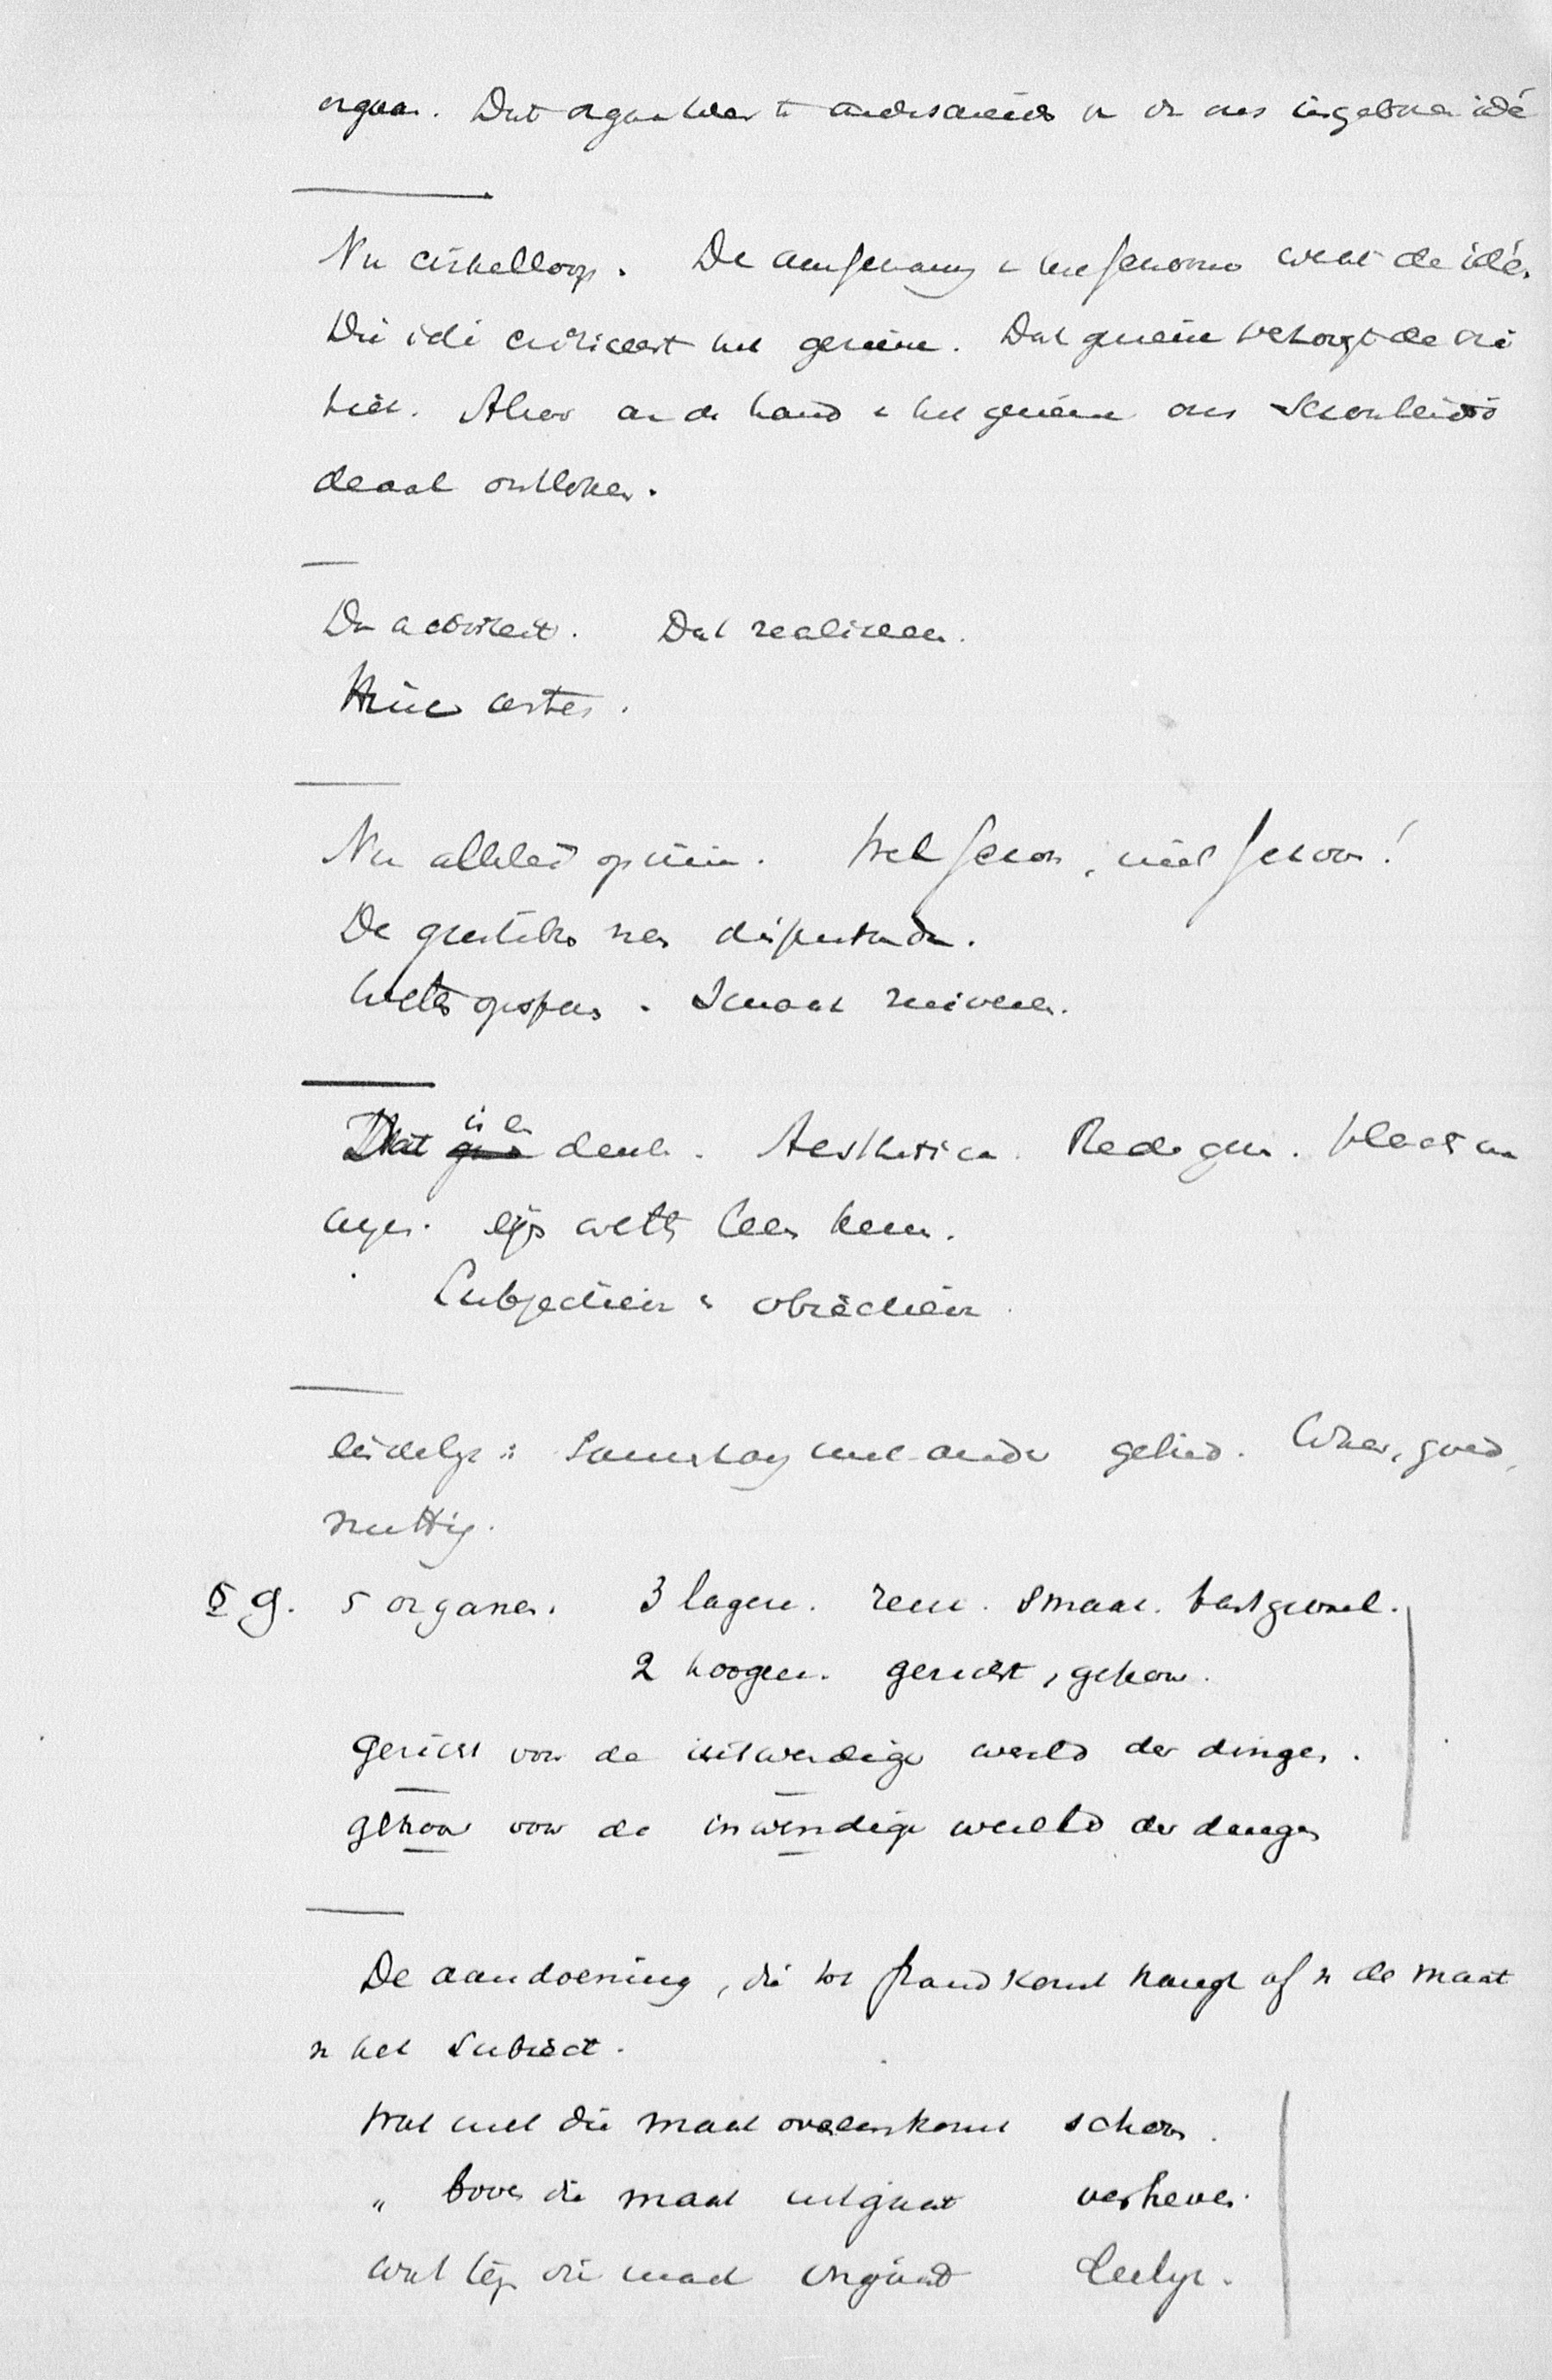 orgaan. Dat orgaan leer te onderscheid en in ons ingeboren idé
Nu cirkelloop. De aanschouwing v het schoone wekt de idé.
Die idé critiseert het genie. Dat genie verhoogt de cri
tiek. Alzoo an de hand v het genie ons Schoonheids
deaal ontloken.
De activiteit. Dat realiseeren.
Hinc artes.
Nu allerlei opinie. Wel schoon, niet schoon!
De gustibus non disputandum.
Wetten opsporen. Smaak zuiveren.
Dat is en denk. Aesthetica. Rede gen.
wetten leeren kennen.
Subjectieve & objectieve
Eindelijk: Samenhang met ander gebied. Waar, goed,
nuttig.
§ 9. 5 organen. 3 lagere. reuk. smaak. tastgevoel.
2 hoogere. gezicht, gehoor.
gezicht voor de uitwendige wereld der dingen.
gehoor voor de inwendige wereld der dingen
De aandoening, die tot stand komt hangt af v de maat
v het subiect.
Wat met die maat overeenkomt schoon.
" boven die maat uitgaat verheven.
wat tegen die maat ingaat Leelijk.